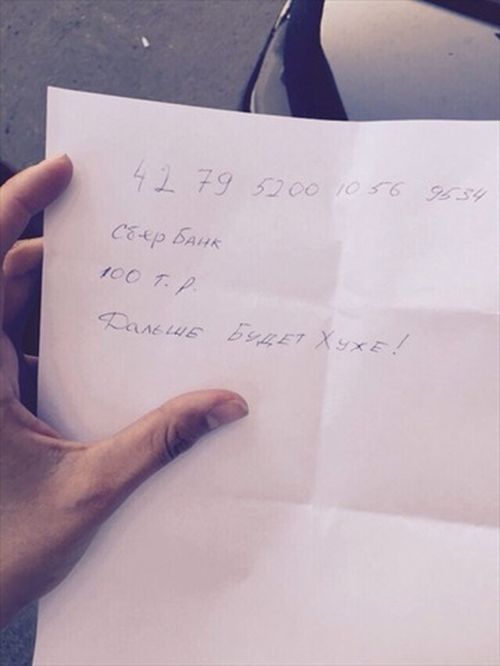 42 79 5200 1056 9534
Сбер Банк
100 т.р.
Дальше Будет Хуже!